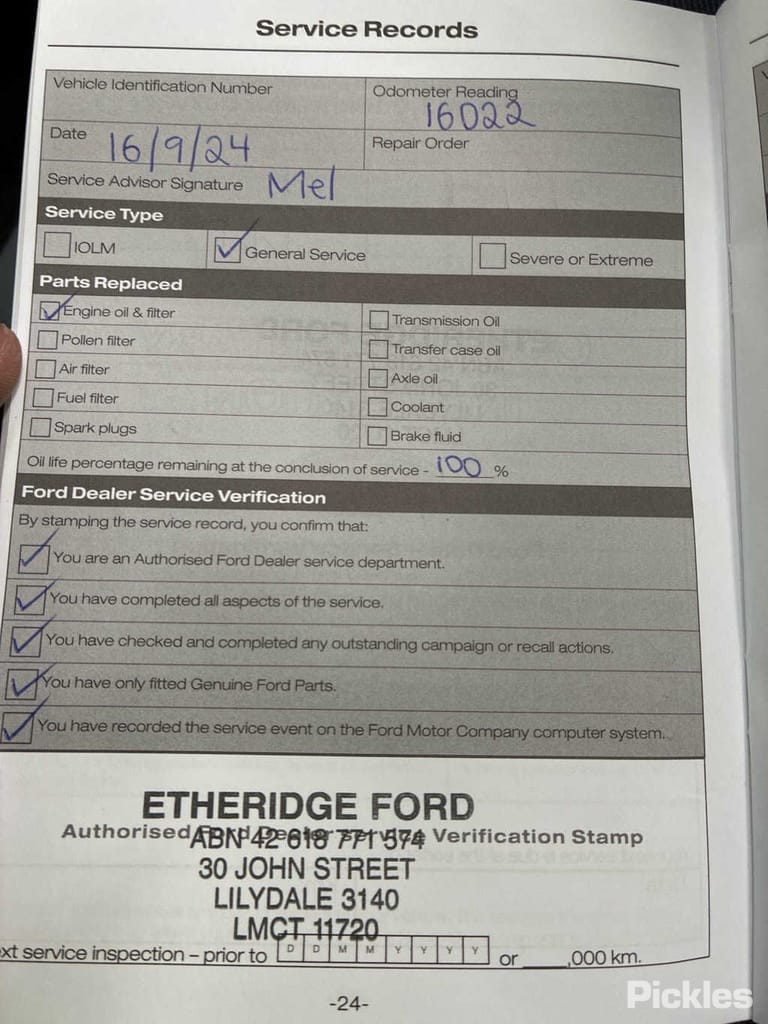 Service Records
Vehicle Identification Number
Odometer Reading
16022
Date 16/9/24
Repair Order
Service Advisor Signature Mel
Service Type
IOLM
General Service
Severe or Extreme
Parts Replaced
Engine oil & filter
Transmission Oil
Pollen filter
Transfer case oil
Air filter
Axle oil
Fuel filter
Coolant
Spark plugs
Brake fluid
Oil life percentage remaining at the conclusion of service - 100 %
Ford Dealer Service Verification
By stamping the service record, you confirm that:
You are an Authorised Ford Dealer service department.
You have completed all aspects of the service.
You have checked and completed any outstanding campaign or recall actions.
You have only fitted Genuine Ford Parts.
You have recorded the service event on the Ford Motor Company computer system.
ETHERIDGE FORD
Authorised Ford Dealer Service Verification Stamp
ABN 42 618 771 574
30 JOHN STREET
LILYDALE 3140
LMCT 11720
xt service inspection – prior to D D M M Y Y Y Y or ____,000 km.
-24-
Pickles